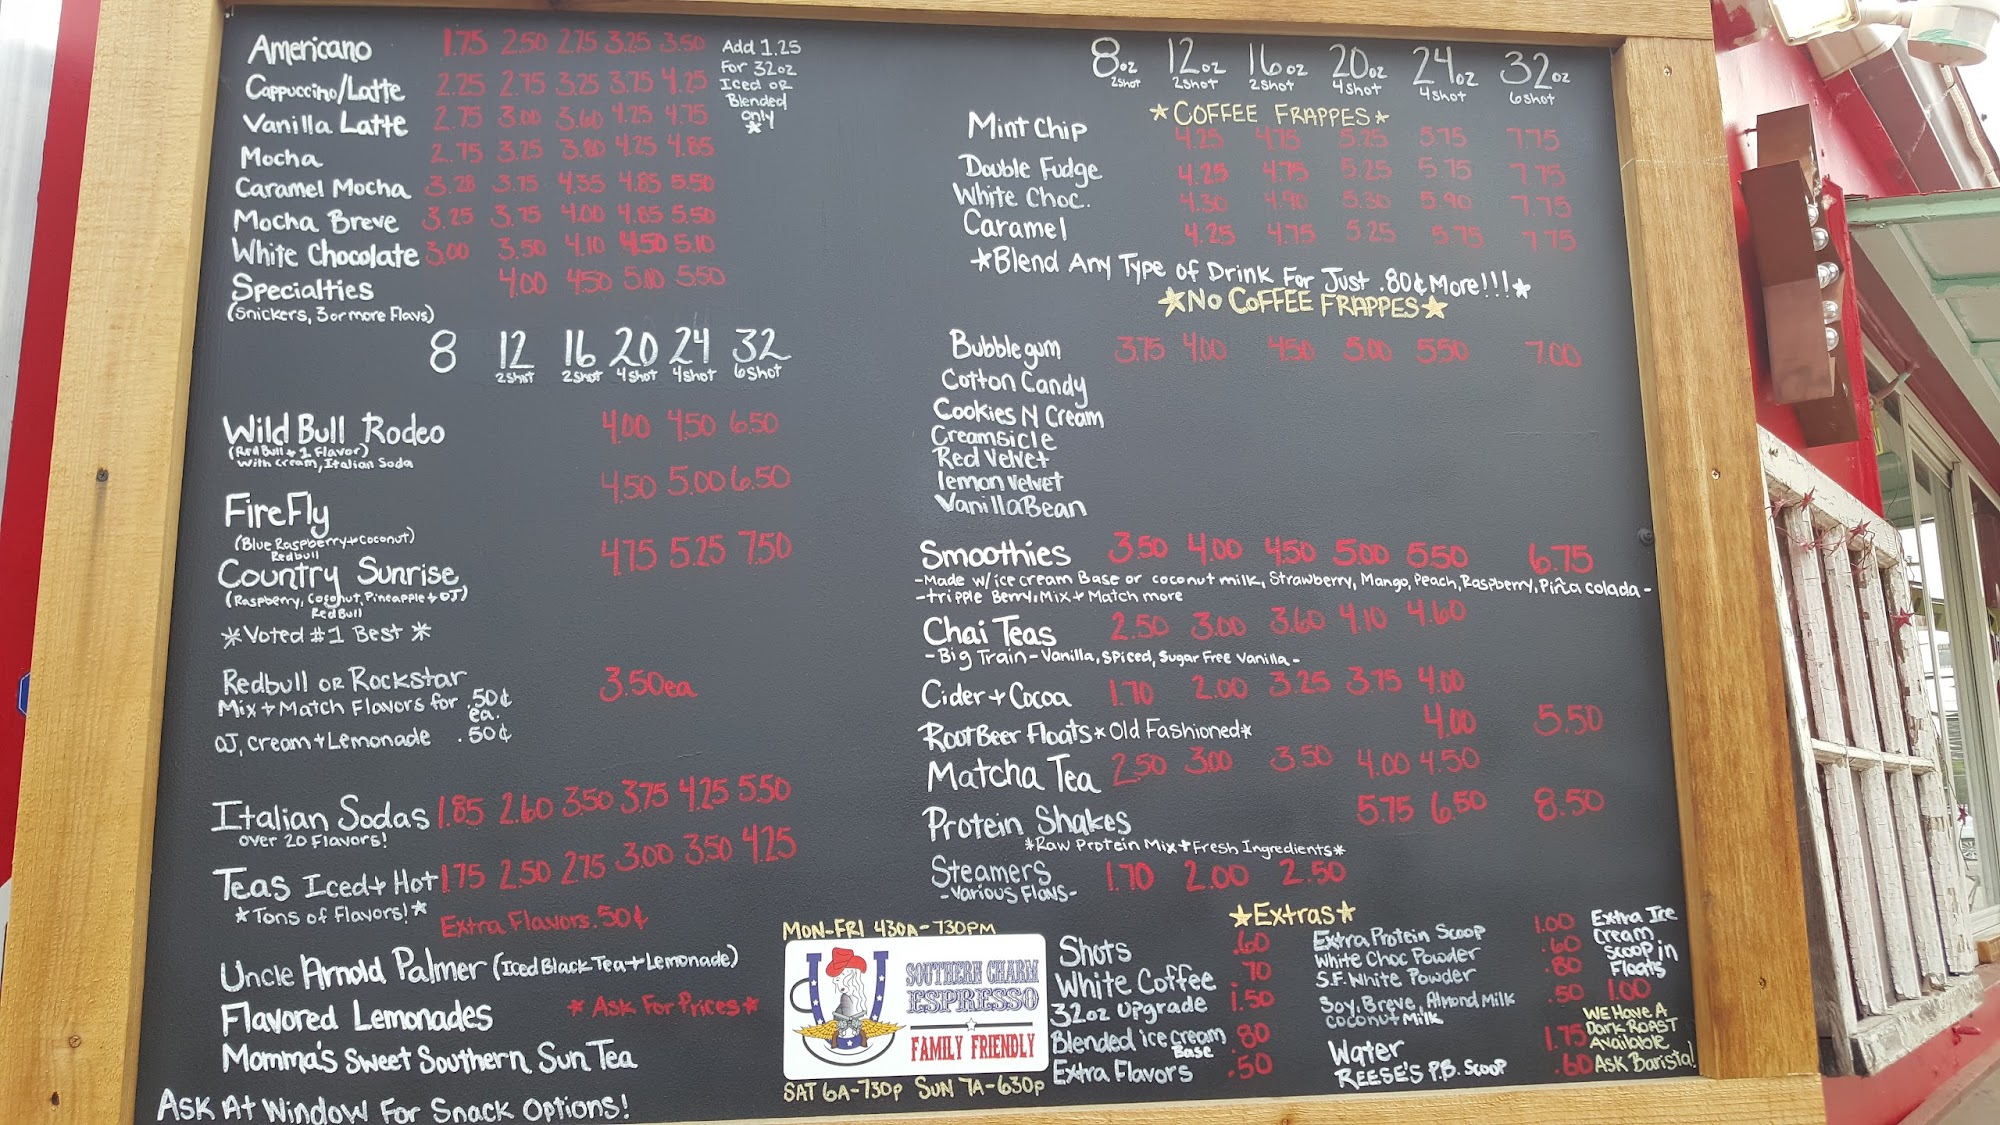 Americano 1.75 2.50 2.75 3.25 3.50
Cappuccino/Latte 2.25 2.75 3.25 3.75 4.25
Vanilla Latte 2.75 3.00 3.60 4.25 4.75
Mocha 2.75 3.25 3.80 4.25 4.85
Caramel Mocha 3.28 3.75 4.35 4.85 5.50
Mocha Breve 3.25 3.75 4.00 4.85 5.50
White Chocolate 3.00 3.50 4.10 4.50 5.10
Specialties 4.00 4.50 5.10 5.50
(Snickers, 3 or more Flavs)
Add 1.25
For 32oz
Iced or
Blended
only
*
8 12 16 20 24 32
2shot 2shot 4shot 4shot 6shot
Wild Bull Rodeo 4.00 4.50 6.50
(Red Bull + 1 Flavor)
with cream, Italian Soda
FireFly 4.50 5.00 6.50
(Blue Raspberry + Coconut)
Redbull
Country Sunrise 4.75 5.25 7.50
(Raspberry, Coconut, Pineapple + OJ)
Red Bull
*Voted #1 Best*
Redbull or Rockstar 3.50ea
Mix + Match Flavors for .50¢
ea.
OJ, Cream + Lemonade .50¢
Italian Sodas 1.85 2.60 3.50 3.75 4.25 5.50
over 20 Flavors!
Teas Iced + Hot 1.75 2.50 2.75 3.00 3.50 4.25
*Tons of Flavors!* Extra Flavors .50¢
Uncle Arnold Palmer (Iced Black Tea + Lemonade)
Flavored Lemonades *Ask For Prices*
Momma's Sweet Southern Sun Tea
Ask At Window For Snack Options!
8oz 12oz 16oz 20oz 24oz 32oz
2shot 2shot 2shot 4shot 4shot 6shot
*COFFEE FRAPPES*
Mint Chip 4.25 4.75 5.25 5.75 7.75
Double Fudge 4.25 4.75 5.25 5.75 7.75
White Choc. 4.30 4.90 5.30 5.90 7.75
Caramel 4.25 4.75 5.25 5.75 7.75
*Blend Any Type of Drink For Just .80¢ More!!!*
*NO COFFEE FRAPPES*
Bubblegum 3.75 4.00 4.50 5.00 5.50 7.00
Cotton Candy
Cookies N Cream
Creamsicle
Red Velvet
lemon velvet
Vanilla Bean
Smoothies 3.50 4.00 4.50 5.00 5.50 6.75
-Made w/ice cream Base or coconut milk, Strawberry, Mango, Peach, Raspberry, Piña colada-
-tripple Berry, Mix + Match more
Chai Teas 2.50 3.00 3.60 4.10 4.60
-Big Train-Vanilla, Spiced, Sugar Free Vanilla-
Cider + Cocoa 1.70 2.00 3.25 3.75 4.00
Root Beer Floats *Old Fashioned* 4.00 5.50
Matcha Tea 2.50 3.00 3.50 4.00 4.50
Protein Shakes 5.75 6.50 8.50
*Raw Protein Mix + Fresh Ingredients*
Steamers 1.70 2.00 2.50
-Various Flavs-
MON-FRI 430A-730PM
SOUTHERN CHARM
ESPRESSO
FAMILY FRIENDLY
SAT 6A-730p SUN 7A-630p
*Extras*
Shots .60
White Coffee .70
32oz upgrade 1.50
Blended ice cream .80
Base
Extra Flavors .50
Extra Protein Scoop 1.00
White Choc Powder .60
S.F. White Powder .80
Soy, Breve, Almond Milk .50
Coconut Milk
Water 1.75
REESE'S P.B. Scoop .60
Extra Ice
Cream
Scoop in
Floats
1.00
WE HAVE A
Dark ROAST
Available
Ask Barista!